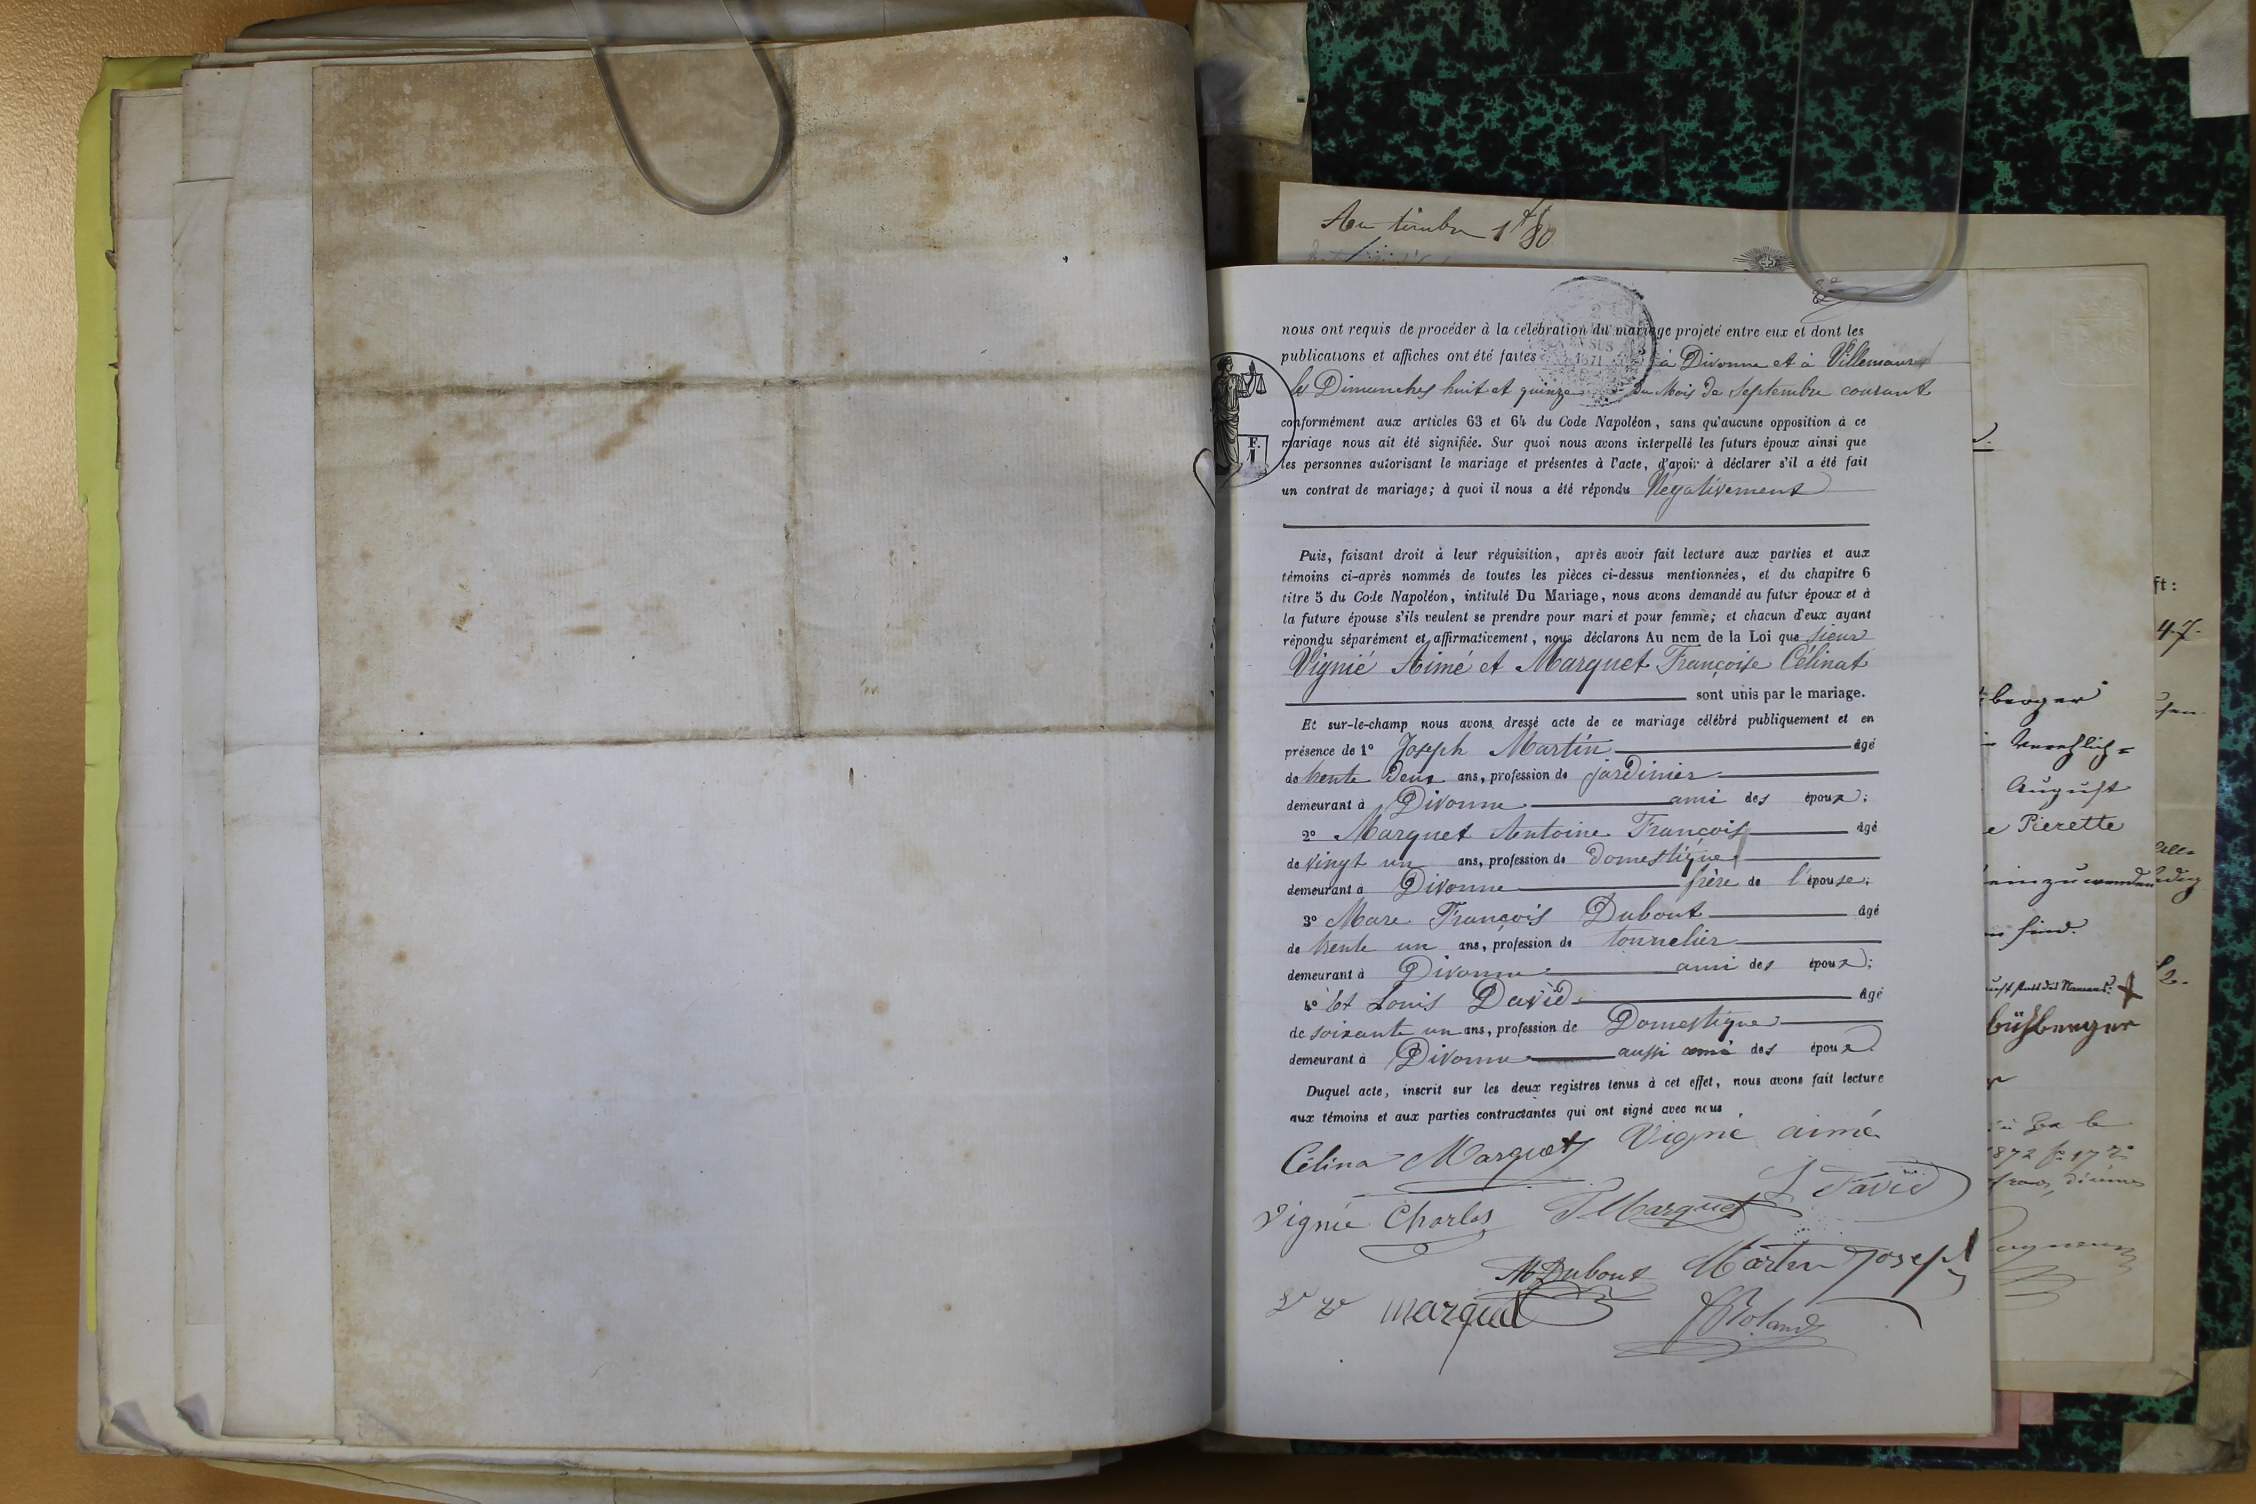 Au timbre 1f80
2e
nous ont requis de procéder à la célébration du mariage projeté entre eux et dont les
publications et affiches ont été faites à Divonne et à Villemaur
les Dimanches huit et quinze du Mois de Septembre courant
conformément aux articles 63 et 64 du Code Napoléon, sans qu'aucune opposition à ce
mariage nous ait été signifiée. Sur quoi nous avons interpellé les futurs époux ainsi que
les personnes autorisant le mariage et présentes à l'acte, d'avoir à déclarer s'il a été fait
un contrat de mariage; à quoi il nous a été répondu Négativement
Puis, faisant droit à leur réquisition, après avoir fait lecture aux parties et aux
témoins ci-après nommés de toutes les pièces ci-dessus mentionnées, et du chapitre 6
titre 5 du Code Napoléon, intitulé Du Mariage, nous avons demandé au futur époux et à
la future épouse s'ils veulent se prendre pour mari et pour femme; et chacun d'eux ayant
répondu séparément et affirmativement, nous déclarons Au nom de la Loi que sieur
Vignié Aimé et Marquet Françoise Célinat
sont unis par le mariage.
Et sur-le-champ nous avons dressé acte de ce mariage célébré publiquement et en
présence de 1° Joseph Martin âgé
de trente deux ans, profession de jardinier
demeurant à Divonne ami des époux;
2° Marquet Antoine François âgé
de vingt un ans, profession de Domestique
demeurant à Divonne frère de l'épouse;
3° Marc François Dubout âgé
de trente un ans, profession de tonnelier
demeurant à Divonne ami des époux;
4° Et Louis David âgé
de soixante un ans, profession de Domestique
demeurant à Divonne aussi ami des époux
Duquel acte, inscrit sur les deux registres tenus à cet effet, nous avons fait lecture
aux témoins et aux parties contractantes qui ont signé avec nous
Célina Marquet Vignié aimé
L David
Vignié Charles F Marquet
M Dubout Martin Joseph
Marquet
Roland
ft:
4.7.
berger
August
Pierette
einzuwenden
sind.
bühberger
Gex le
1872 fo 17
décimes